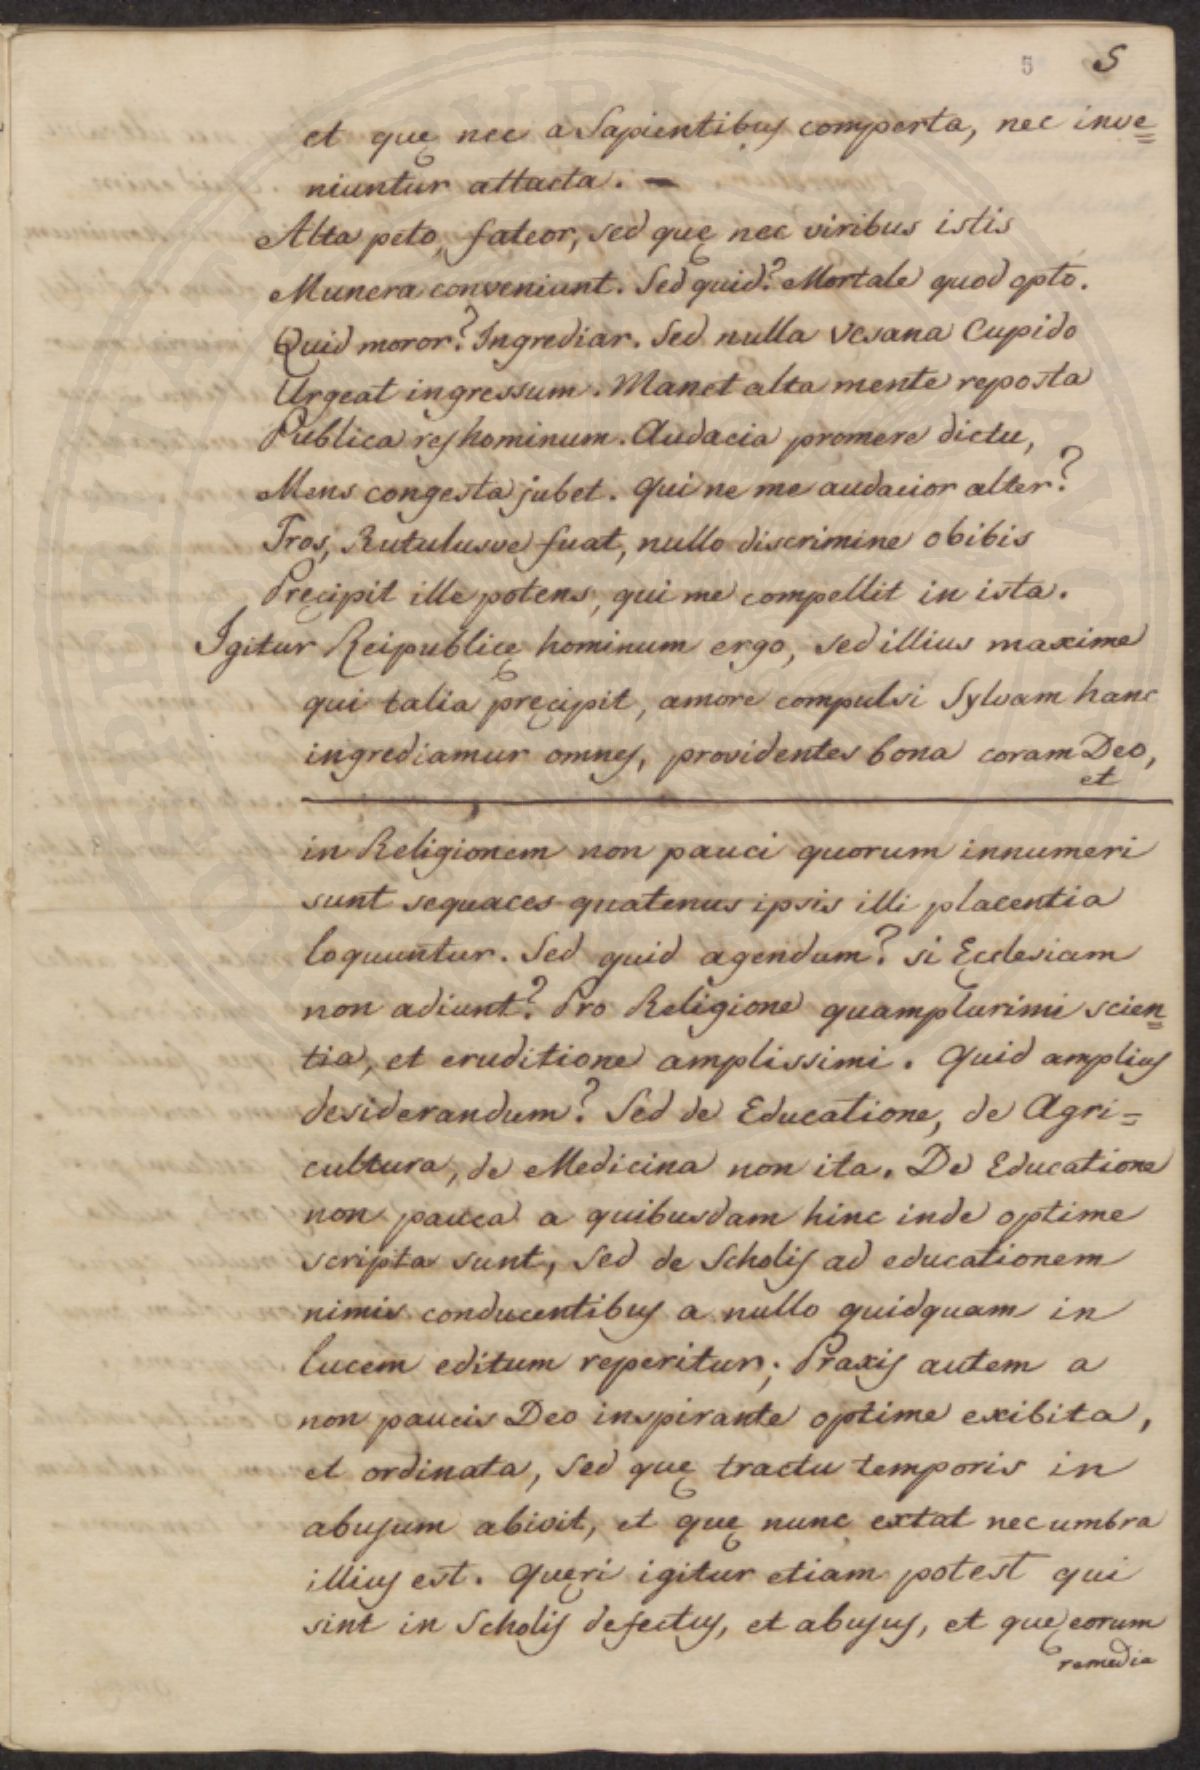 5 5
et quę nec a Sapientibus comperta, nec inve=
niuntur attacta. —
Alta peto, fateor, sed quę nec viribus istis
Munera conveniant. Sed quid? Mortale quod opto.
Quid moror? Ingrediar. Sed nulla vesana Cupido
Urgeat ingressum. Manet alta mente reposta
Publica res hominum. Audacia promere dictu,
Mens congesta jubet. Qui ne me audacior alter?
Tros, Rutulusve fuat, nullo discrimine obibis
Pręcipit ille potens, qui me compellit in ista.
Igitur Reipublicę hominum ergo, sed illius maxime
qui talia pręcipit, amore compulsi Sylvam hanc
ingrediamur omnes, providentes bona coram Deo,
et
in Religionem non pauci quorum innumeri
sunt sequaces quatenus ipsis illi placentia
loquuntur. Sed quid agendum? si Ęcclesiam
non adiunt? Pro Religione quamplurimi scien=
tia, et eruditione amplissimi. Quid amplius
desiderandum? Sed de Educatione, de Agri=
cultura, de Medicina non ita. De Educatione
non pauca a quibusdam hinc inde optime
scripta sunt, sed de Scholis ad educationem
nimis conducentibus a nullo quidquam in
lucem editum reperitur; Praxis autem a
non paucis Deo inspirante optime exibita,
et ordinata, sed quę tractu temporis in
abusum abivit, et quę nunc extat nec umbra
illius est. Quęri igitur etiam potest qui
sint in Scholis defectus, et abusus, et quę eorum
remedia